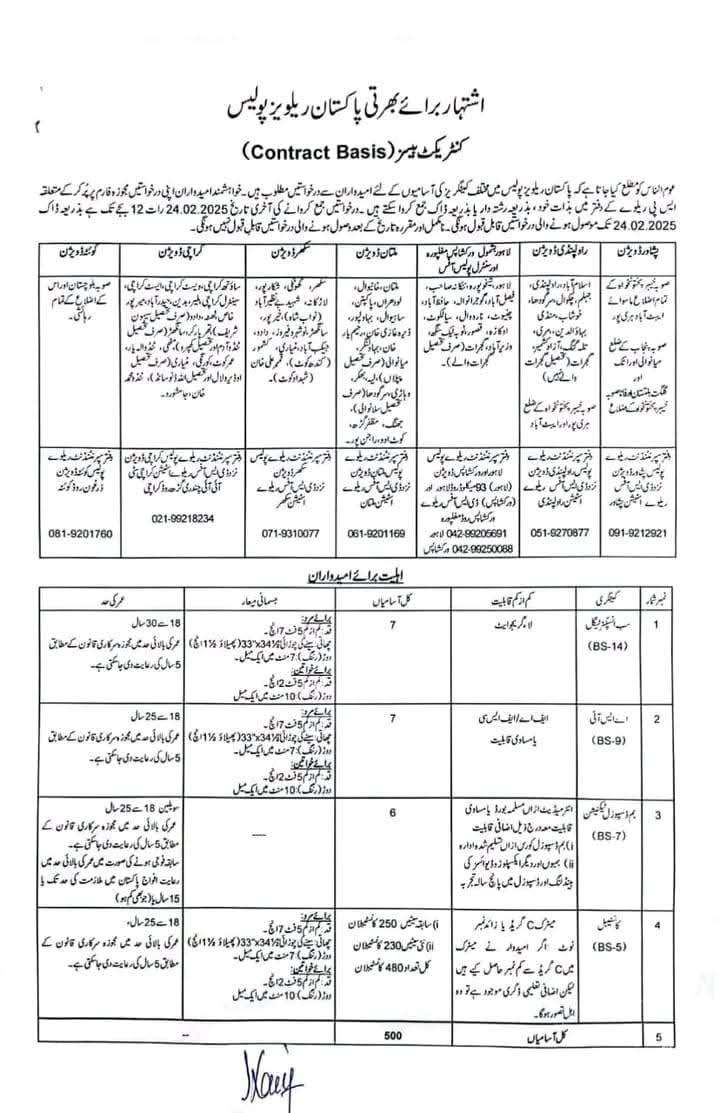 اشتہار برائے بھرتی پاکستان ریلویز پولیس
کنٹریکٹ بیسز (Contract Basis)
عوام الناس کو مطلع کیا جاتا ہے کہ پاکستان ریلویز پولیس میں مختلف کیٹگریز کی آسامیوں کے لئے امیدواران سے درخواستیں مطلوب ہیں۔ خواہشمند امیدواران اپنی درخواستیں مجوزہ فارم پر پُر کر کے متعلقہ
ایس پی ریلوے کے دفتر میں بذات خود، بذریعہ رشتہ دار یا بذریعہ ڈاک جمع کروا سکتے ہیں۔ درخواستیں جمع کروانے کی آخری تاریخ 24.02.2025 رات 12 بجے تک ہے بذریعہ ڈاک
24.02.2025 تک موصول ہونے والی درخواستیں قابل قبول ہونگی۔ نامکمل اور مقررہ تاریخ کے بعد وصول ہونے والی درخواستیں قابل قبول نہیں ہونگی۔
پشاور ڈویژن
راولپنڈی ڈویژن
لاہور بشمول ورکشاپس مغلپورہ
اور سنٹرل پولیس آفس
ملتان ڈویژن
سکھر ڈویژن
کراچی ڈویژن
کوئٹہ ڈویژن
صوبہ خیبر پختونخواہ کے
تمام اضلاع ماسوائے
ایبٹ آباد ہری پور
صوبہ پنجاب کے ضلع
میانوالی اور اٹک
گلگت بلتستان اور فاٹا صوبہ
خیبر پختونخواہ کے اضلاع
اسلام آباد، راولپنڈی،
جہلم، چکوال، سرگودھا،
خوشاب، منڈی
بہاؤالدین، مری،
تلہ گنگ، آزاد کشمیر،
گجرات (تحصیل گجرات
والے نہیں)
صوبہ خیبر پختونخواہ کے ضلع
ہری پور اور ایبٹ آباد
لاہور، شیخوپورہ، ننکانہ صاحب،
فیصل آباد، گوجرانوالہ، حافظ آباد،
چنیوٹ، نارووال، سیالکوٹ،
اوکاڑہ، قصور، ٹوبہ ٹیک سنگھ،
وزیر آباد، گجرات (صرف تحصیل
گجرات والے)۔
ملتان، خانیوال،
لودھراں، پاکپتن،
ساہیوال، بہاولپور،
ڈیرہ غازی خان، رحیم یار
خان، بہاولنگر،
میانوالی (صرف تحصیل
پپلاں)، لیہ، بھکر،
وہاڑی، سرگودھا (صرف
تحصیل سلانوالی)،
جھنگ، مظفر گڑھ،
کوٹ ادو، راجن پور۔
سکھر، گھوٹکی، شکارپور،
لاڑکانہ، شہید بے نظیر آباد
(نواب شاہ)، خیر پور،
سانگھڑ، نوشہرو فیروز، دادو،
جیکب آباد، مٹیاری، کشمور
(کندھ کوٹ)، قمبر علی خان
(شہداد کوٹ)۔
ساؤتھ کراچی، ویسٹ کراچی، ایسٹ کراچی،
سینٹرل کراچی، ملیر، بدین، حیدر آباد، میر پور
خاص، ٹھٹھہ، دادو (صرف تحصیل سیہون
عمر کوٹ، کورنگی، مٹیاری (صرف تحصیل
خان، جامشورو۔
صوبہ بلوچستان اور اس
کے اضلاع کے تمام
رہائشی۔
دفتر سپرنٹنڈنٹ ریلوے
پولیس پشاور ڈویژن
نزد ڈی ایس آفس
ریلوے اسٹیشن پشاور
091-9212921
دفتر سپرنٹنڈنٹ ریلوے
پولیس راولپنڈی ڈویژن
نزد ڈی ایس آفس ریلوے
اسٹیشن راولپنڈی
051-9270877
دفتر سپرنٹنڈنٹ ریلوے پولیس
لاہور اور ورکشاپس ڈویژن
(لاہور) 93 میکلوڈ روڈ لاہور اور
(ورکشاپس) ڈی ایس آفس ریلوے
ورکشاپس روڈ مغلپورہ
لاہور 042-99205691
ورکشاپس 042-99250088
دفتر سپرنٹنڈنٹ ریلوے
پولیس ملتان ڈویژن
نزد ڈی ایس آفس ریلوے
اسٹیشن ملتان
061-9201169
دفتر سپرنٹنڈنٹ ریلوے پولیس
سکھر ڈویژن
نزد ڈی ایس آفس ریلوے
اسٹیشن سکھر
071-9310077
دفتر سپرنٹنڈنٹ ریلوے پولیس کراچی ڈویژن
نزد ڈی ایس آفس ریلوے اسٹیشن کراچی سٹی
آئی آئی چندریگر روڈ کراچی
021-99218234
دفتر سپرنٹنڈنٹ ریلوے
پولیس کوئٹہ ڈویژن
زرغون روڈ کوئٹہ
081-9201760
اہلیت برائے امیدواران
نمبر شمار
کیٹگری
کم از کم قابلیت
کل آسامیاں
جسمانی معیار
عمر کی حد
1
سب انسپکٹر لیگل
(BS-14)
لاء گریجوایٹ
7
برائے مرد:
قد: کم از کم 5 فٹ 7 انچ۔
چھاتی: سینے کی چوڑائی 33"x34½ (پھیلاؤ 1½ انچ)
دوڑ (رننگ): 7 منٹ میں ایک میل۔
برائے خواتین:
قد: کم از کم 5 فٹ 2 انچ۔
دوڑ (رننگ): 10 منٹ میں ایک میل
18 سے 30 سال
عمر کی بالائی حد میں مجوزہ سرکاری قانون کے مطابق
5 سال کی رعایت دی جا سکتی ہے۔
2
اے ایس آئی
(BS-9)
ایف اے/ایف ایس سی
یا مساوی قابلیت
7
برائے مرد:
قد: کم از کم 5 فٹ 7 انچ۔
چھاتی: سینے کی چوڑائی 33"x34½ (پھیلاؤ 1½ انچ)
دوڑ (رننگ): 7 منٹ میں ایک میل۔
برائے خواتین:
قد: کم از کم 5 فٹ 2 انچ۔
دوڑ (رننگ): 10 منٹ میں ایک میل
18 سے 25 سال
عمر کی بالائی حد میں مجوزہ سرکاری قانون کے مطابق
5 سال کی رعایت دی جا سکتی ہے۔
3
بم ڈسپوزل ٹیکنیشن
(BS-7)
انٹرمیڈیٹ از اں مسلمہ بورڈ یا مساوی
قابلیت معہ درج ذیل اضافی قابلیت
i) بم ڈسپوزل کورس از اں تسلیم شدہ ادارہ
ii) بموں اور دیگر ایکسپلوزو ڈیوائسز کی
ہینڈلنگ اور ڈسپوزل میں پانچ سالہ تجربہ
6
----
سویلین 18 سے 25 سال
عمر کی بالائی حد میں مجوزہ سرکاری قانون کے
مطابق 5 سال کی رعایت دی جا سکتی ہے۔
سابقہ فوجی ہونے کی صورت میں عمر کی بالائی حد میں
رعایت افواج پاکستان میں ملازمت کی حد تک یا
15 سال یا (جو بھی کم ہو)
4
کانسٹیبل
(BS-5)
میٹرک C گریڈ یا زائد نمبر
نوٹ اگر امیدوار نے میٹرک
میں C گریڈ سے کم نمبر حاصل کیے ہیں
لیکن اضافی تعلیمی ڈگری موجود ہے تو وہ
اہل تصور ہوگا۔
i) سابقہ سیٹیں 250 کانسٹیبلان
ii) نئی سیٹیں 230 کانسٹیبلان
کل تعداد 480 کانسٹیبلان
برائے مرد:
قد: کم از کم 5 فٹ 7 انچ۔
چھاتی: سینے کی چوڑائی 33"x34½ (پھیلاؤ 1½ انچ)
دوڑ (رننگ): 7 منٹ میں ایک میل۔
برائے خواتین:
قد: کم از کم 5 فٹ 2 انچ۔
دوڑ (رننگ): 10 منٹ میں ایک میل
18 سے 25 سال۔
عمر کی بالائی حد میں مجوزہ سرکاری قانون کے
مطابق 5 سال کی رعایت دی جا سکتی ہے۔
5
کل آسامیاں
500
--